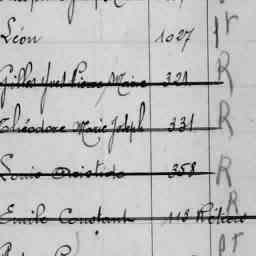 Léon 1027 pr
Gilles Yves Pierre Marie 321 R
Théodore Marie Joseph 331 R
Louis Aristide 358 R
R
Emile Constant 118
pr